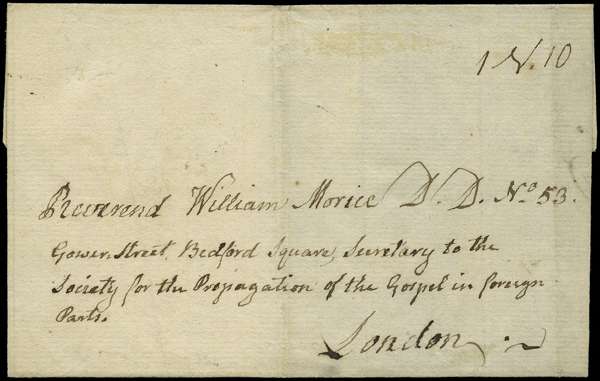 1 N. 10
Reverend William Morice D. D. No 53.
Gower Street, Bedford Square, Secretary to the
Society for the Propagation of the Gospel in foreign
Parts.
London